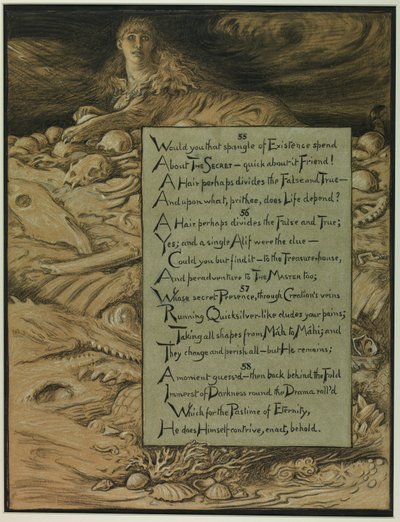 55
Would you that spangle of Existence spend
About THE SECRET — quick about it Friend!
A Hair perhaps divides the False and True —
And upon what, prithee, does Life depend?
56
A Hair perhaps divides the False and True;
Yes; and a single Alif were the clue —
Could you but find it — to the Treasure-house,
And peradventure to THE MASTER too;
57
Whose secret Presence, through Creation's veins
Running Quicksilver-like eludes your pains;
Taking all shapes from Máh to Máhi; and
They change and perish all — but He remains;
58
A moment guess'd — then back behind the Fold
Immerst of Darkness round the Drama roll'd
Which for the Pastime of Eternity,
He does Himself contrive, enact, behold.